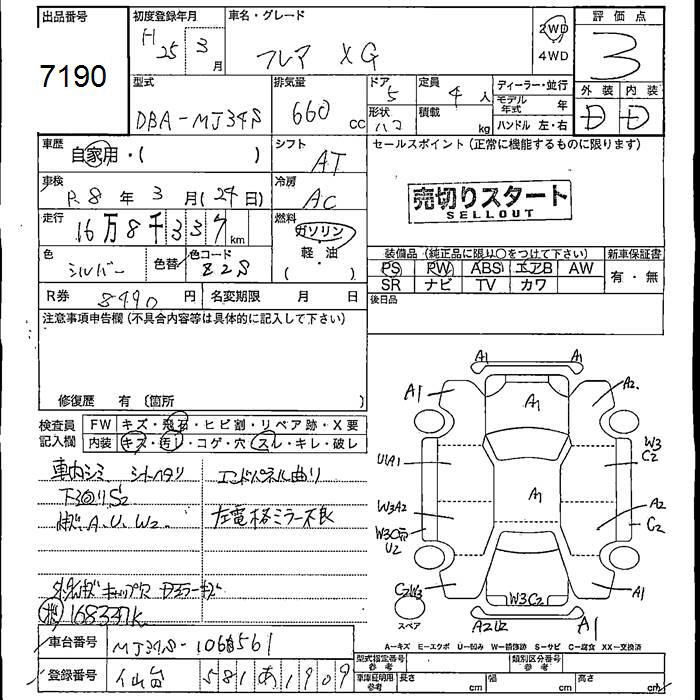 出品番号 初度登録年月 車名・グレード 評価点
7190 H25 3月 フレア XG 2WD 4WD 3
型式 排気量 ドア 5 定員 4人 ディーラー・並行 外装 内装
DBA-MJ34S 660cc 形状 ハコ 積載 kg モデル年式 年 D D
ハンドル 左・右
車歴 シフト セールスポイント(正常に機能するものに限ります)
自家用・( ) AT
車検 R.8年 3月(24日) 冷房 AC
売切りスタート
SELLOUT
走行 16万8千337km 燃料 ガソリン
軽・油
色 シルバー 色替 色コード 装備品(純正品に限り○をつけて下さい) 新車保証書
PS PW ABS エアB AW 有・無
SR ナビ TV カワ
R券 8490円 名変期限 月 日 後日品
注意事項申告欄(不具合内容等は具体的に記入して下さい)
修復歴 有〔箇所 〕
検査員 FW キズ・飛石・ヒビ割・リペア跡・X要
記入欄 内装 キズ・汚レ・コゲ・穴・スレ・キレ・破レ
車内シミ シートヘタリ エンドパネル曲り
下回りS2
A.U.W2 左電格ミラー不良
168337K
車台番号 MJ34S-106561
登録番号 仙台 581 あ1909
A1 A1
A1 A1 A2
U1A1 W3 C2
W3A2 A1 A2
W3 U2 C2
C2W3 W3C2 A1
スペア A2U2 A1
A-キズ E-エクボ U-凹み W-補修跡 S-サビ C-腐食 XX-交換済
型式指定番号 参考 類別区分番号 参考
車庫証明用 参考 長さ cm 幅 cm 高さ cm